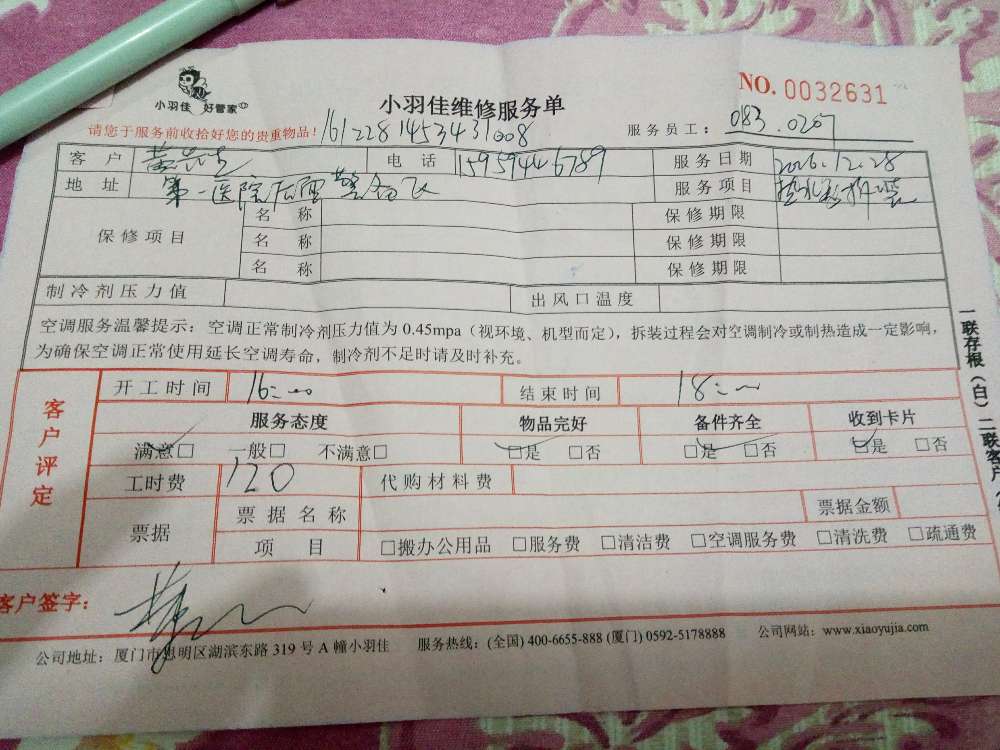 小羽佳 好管家
小羽佳维修服务单
NO. 0032631
请您于服务前收拾好您的贵重物品!
1612281453431008
服务员工: 083.0207
客户 黄先生 电话 15959446789 服务日期 2016.12.28
地址 第一医院后面 服务项目 热水器拆装
保修项目 名称 保修期限
名称 保修期限
名称 保修期限
制冷剂压力值 出风口温度
空调服务温馨提示:空调正常制冷剂压力值为0.45mpa(视环境、机型而定),拆装过程会对空调制冷或制热造成一定影响,
为确保空调正常使用延长空调寿命,制冷剂不足时请及时补充。
客户评定
开工时间 16:00 结束时间 18:
服务态度 物品完好 备件齐全 收到卡片
满意□ 一般□ 不满意□ □是 □否 □是 □否 □是 □否
工时费 120 代购材料费
票据 票据名称 票据金额
项目 □搬办公用品 □服务费 □清洁费 □空调服务费 □清洗费 □疏通费
客户签字:
公司地址:厦门市思明区湖滨东路319号A幢小羽佳 服务热线:(全国)400-6655-888(厦门)0592-5178888 公司网站:www.xiaoyujia.com
一联存根(白)二联客户